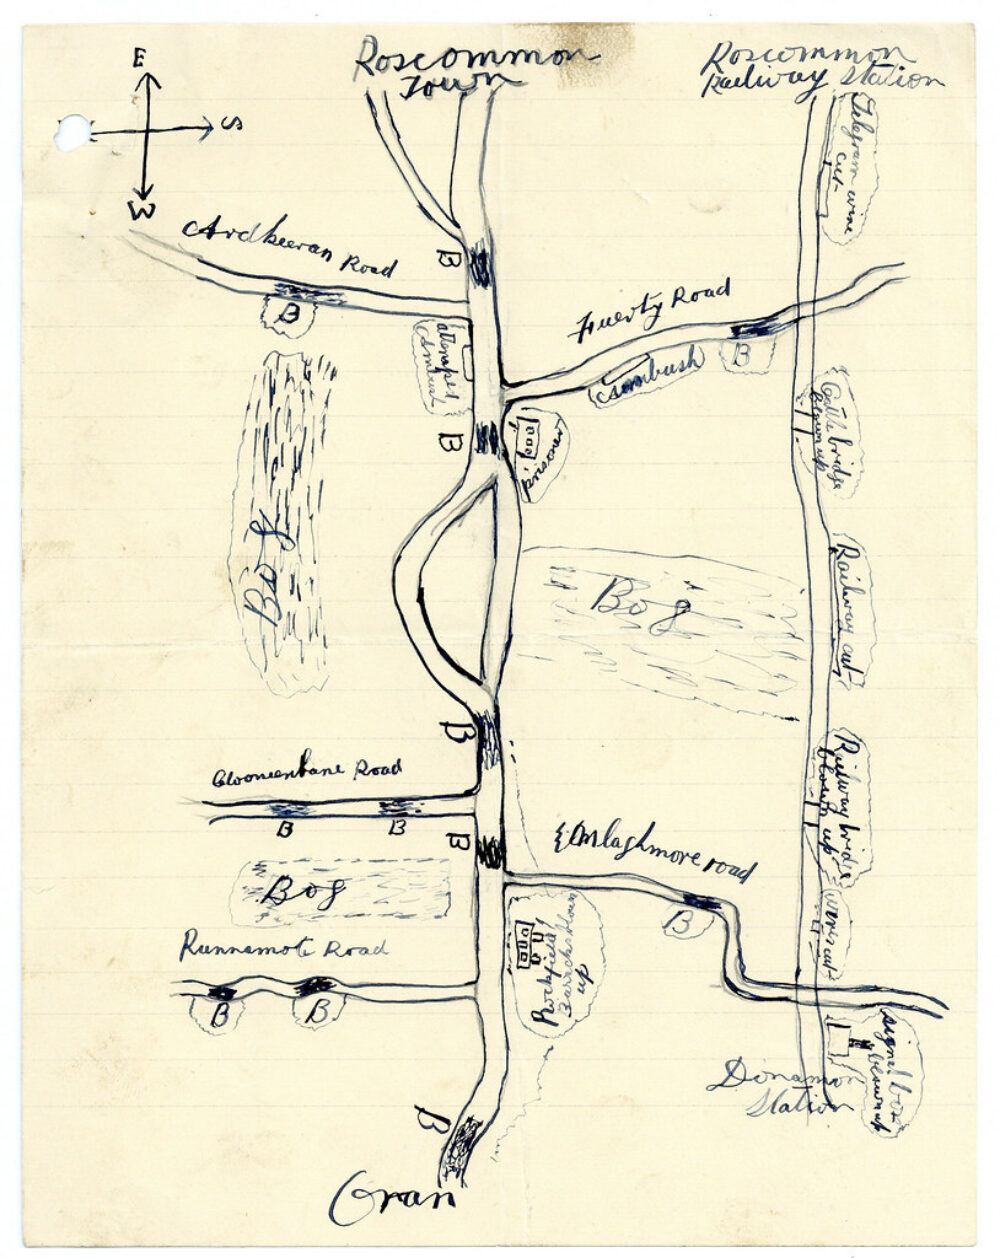 Roscommon
Town
Roscommon
Railway Station
E
S
W
Telegram wire
cut
Ardkeeran Road
B
B
Fuerty Road
B
Ambush
attempted
Ambush
B
prisoner
Cattle bridge
blown up
Bog
Bog
Railway cut
B
Clooneenbane Road
B
B
B
Railway bridge
blown up
Emlaghmore road
B
Bog
wires cut
Runnamote Road
B
B
Rockfield
Barracks blown
up
signal box
blown up
Donamon
Station
B
Oran